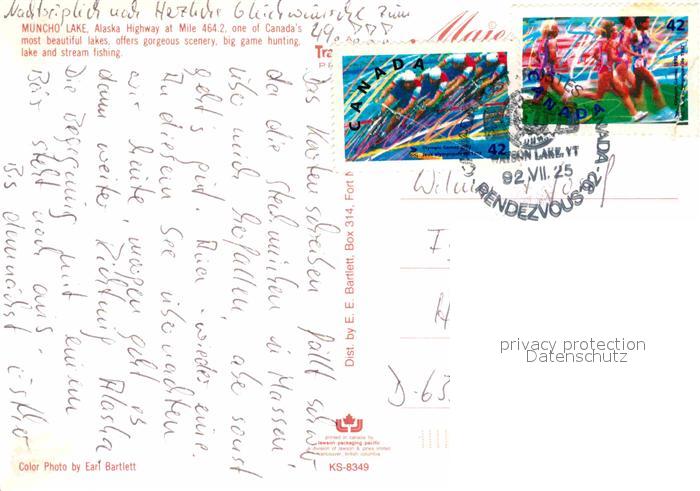 Nachträglich noch Herzliche Glückwünsche zum
49.
MUNCHO LAKE, Alaska Highway at Mile 464.2, one of Canada's
most beautiful lakes, offers gorgeous scenery, big game hunting,
lake and stream fishing.
Das Karten schreiben fällt schwer,
da die Stechmücken in Massen
über mich herfallen, aber sonst
geht's gut. Hier wieder eine
An diesem See übernachten
wir heute, morgen geht es
dann weiter Richtung Alaska.
Die Begegnung mit einem
Bär steht noch aus.
Bis demnächst Esther
Color Photo by Earl Bartlett
Dist. by E. E. Bartlett, Box 314, Fort N
printed in canada by
lawson packaging pacific
a division of lawson & jones limited
vancouver, british columbia
KS-8349
CANADA
42
CANADA
42
WATSON LAKE, YT
92.VII.25
RENDEZVOUS CANADA-92
D-63
privacy protection
Datenschutz